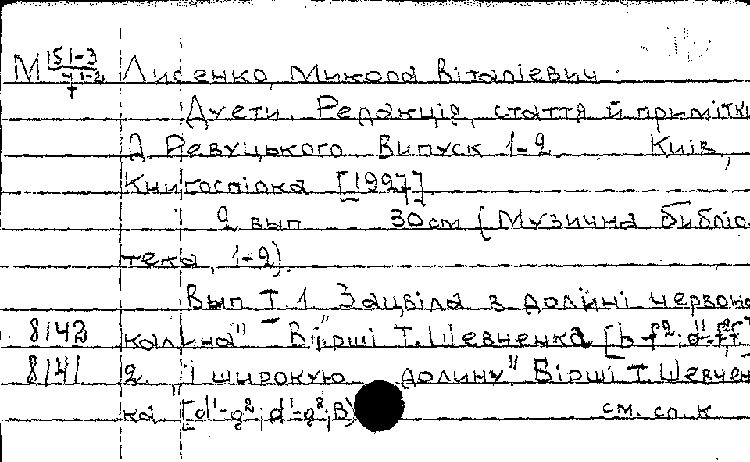 М 151-3 Лисенко, Микола Віталієвич.
71-2
Дуети. Редакція, стаття й примітки
Д. Ревуцького. Випуск 1-2. Київ,
Книгоспілка [1927]
2 вып. 30 см (Музична библіо-
тека, 1-2).
Вып. 1. Зацвіла в долині червона
8142 калина" Вірші Т. Шевченка
8141 2. "І широкую долину" Вірші Т. Шевчен-
ка [d¹-g²; d¹-g²; В]
см. сл. к